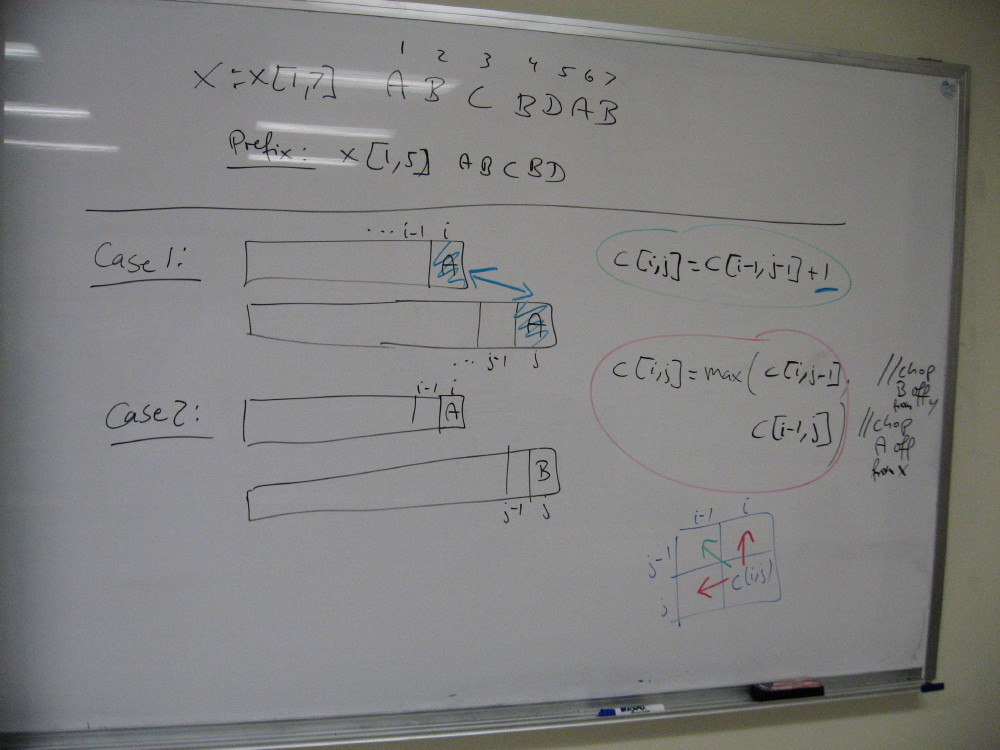 1 2 3 4 5 6 7
X = X[1,7] A B C B D A B
Prefix: X[1,5] A B C B D
Case 1:
... i-1 i
A
A
... j-1 j
C[i,j] = C[i-1,j-1] + 1
C[i,j] = max( C[i,j-1], //chop B off from y
C[i-1,j] ) //chop A off from x
Case 2:
i-1 i
A
B
j-1 j
i-1 i
j-1
j C[i,j]